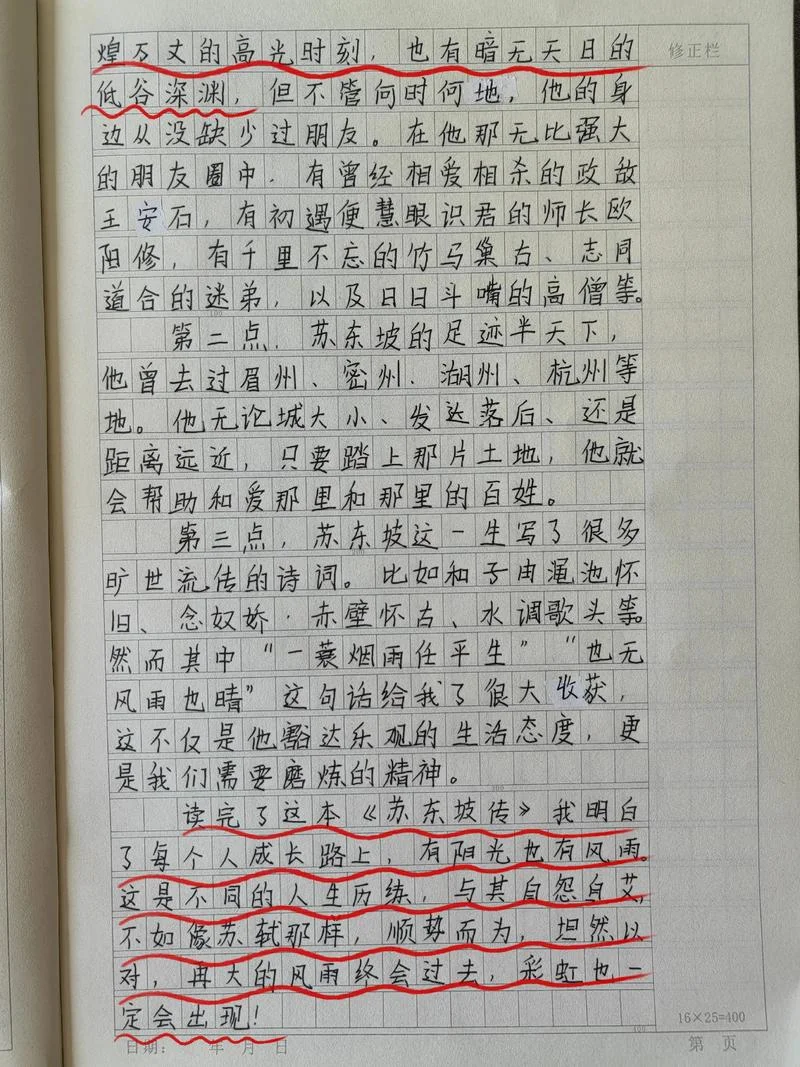 煌万丈的高光时刻，也有暗无天日的
修正栏
低谷深渊，但不管何时何地，他的身
边从没缺少过朋友。在他那无比强大
的朋友圈中，有曾经相爱相杀的政敌
王安石，有初遇便慧眼识君的师长欧
阳修，有千里不忘的竹马巢古、志同
道合的迷弟，以及日日斗嘴的高僧等。
100
第二点，苏东坡的足迹半天下，
他曾去过眉州、密州、湖州、杭州等
地。他无论城大小、发达落后、还是
距离远近，只要踏上那片土地，他就
会帮助和爱那里和那里的百姓。
第三点，苏东坡这一生写了很多
200
旷世流传的诗词。比如和子由渑池怀
旧、念奴娇·赤壁怀古、水调歌头等。
然而其中“一蓑烟雨任平生”“也无
风雨也晴”这句话给我了很大收获，
这不仅是他豁达乐观的生活态度，更
是我们需要磨炼的精神。
300
读完了这本《苏东坡传》我明白
了每个人成长路上，有阳光也有风雨。
这是不同的人生历练，与其自怨自艾，
不如像苏轼那样，顺势而为，坦然以
对，再大的风雨终会过去，彩虹也一
定会出现！
16×25=400
400
日期： 年 月 日
第 页